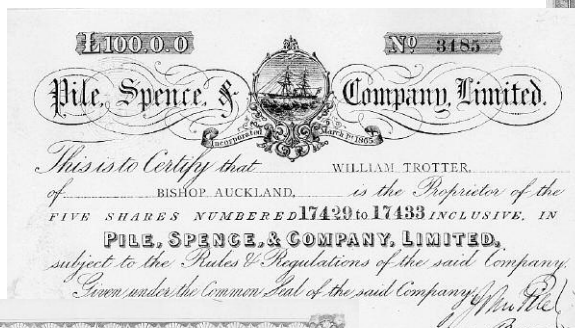 £100.0.0
Nº 3185
Pile, Spence, & Company, Limited.
Incorporated March 1st 1865
This is to Certify that WILLIAM TROTTER,
of BISHOP AUCKLAND, is the Proprietor of the
FIVE SHARES NUMBERED 17429 to 17433 INCLUSIVE, IN
PILE, SPENCE, & COMPANY, LIMITED,
subject to the Rules & Regulations of the said Company.
Given under the Common Seal of the said Company,
John Pile